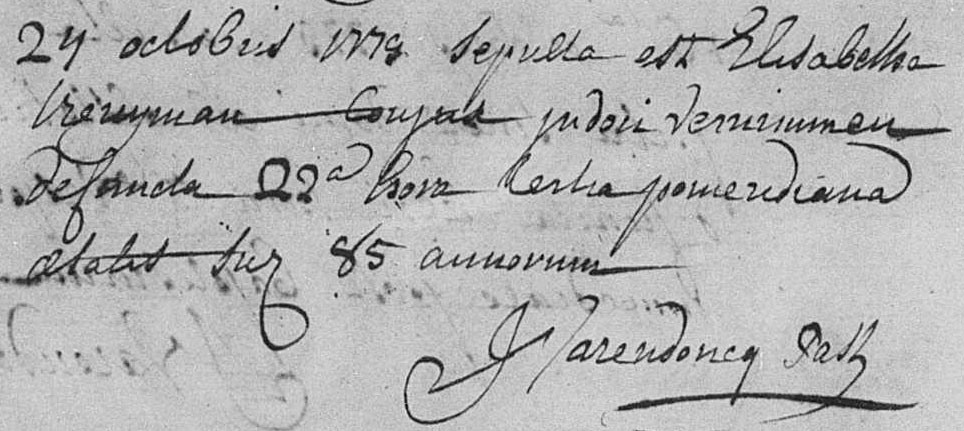 24 octobris 1778 sepulta est Elisabetha
conjux judoci
defuncta 22ª hora sexta pomeridiana
ætatis suæ 85 annorum
J Narendoncq Past